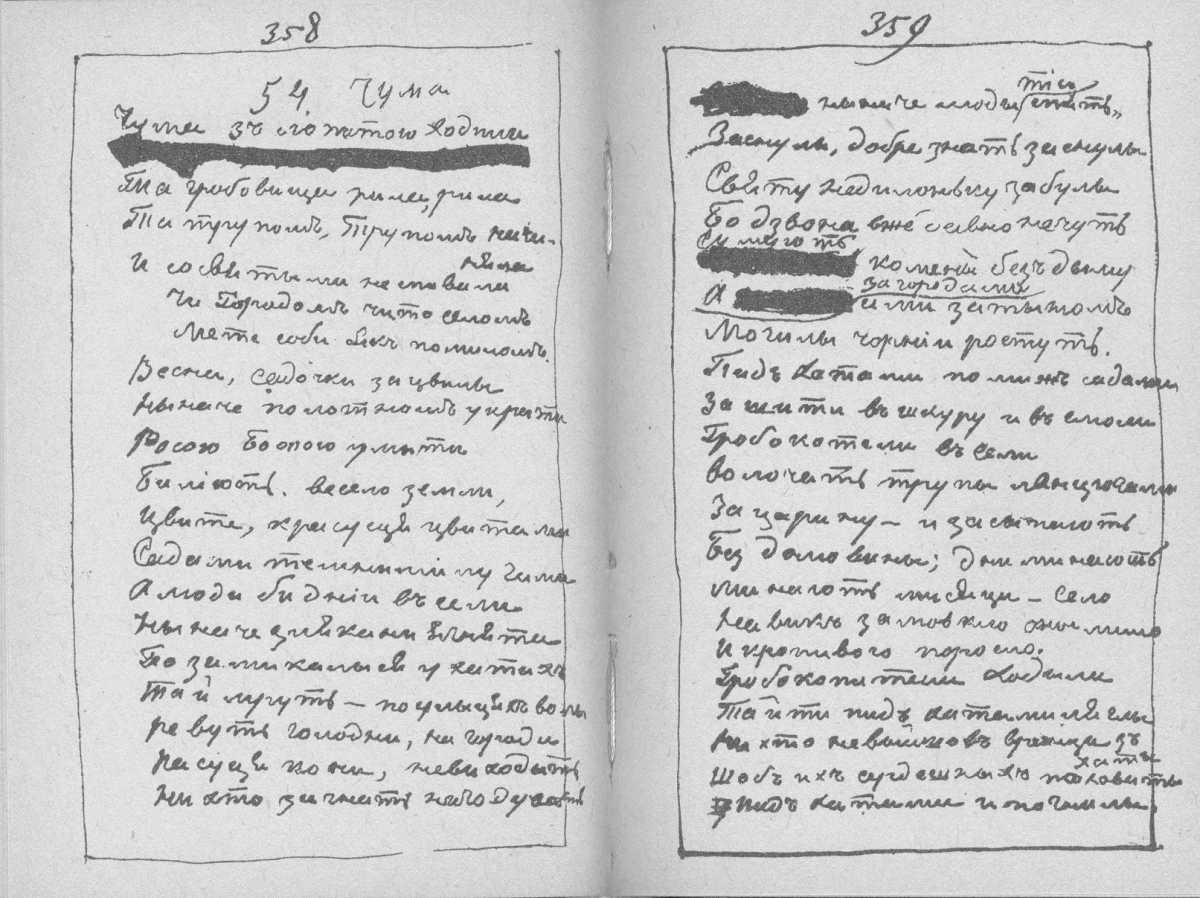 358
54 Чума
Чума зъ лопатою ходила
Та гробовища рила, рила
Та трупомъ, трупомъ начи-
няла
И со святыми не спивали
Чи городомъ чи то селомъ
Мете соби якъ помеломъ.
Весна, садочки зацвилы
Ныначе полотномъ укрыти
Росою Божою умыти
Билiють. весело земли,
Цвите, красуця цвитами
Садами темними лугами
А люде биднiи въ сели
Ныначе злякани ягнята
Позамикалыся у хатахъ
Та й мруть — по улыцяхъ волы
ревуть голодни, на городи
пасуця кони, невиходыть
Ни хто загнать нагодувать
359
ныначе люде тiи спять„
Заснулы, добре знать заснулы
Святу недиленьку забулы
Бо дзвона вже давно нечуть
Сумують
комени безъ дыму
за городами
А ами за тыномъ
Могилы чорнiи ростуть.
Пидъ хатами помижъ садами
Зашити въ шкуру и въ смоли
Гробокопатели въ сели
волочать трупы ланцюгами
За царину — и засыпають
Без домовины; дни минають
минають мисяци — село
На викъ замовкло онимило
И кропивою поросло.
Гробокопатели ходили
Та й ти пидъ хатами ляглы
Ни хто невыйшовъ вранци зъ
хаты
Щобъ ихъ сердешныхъ поховаты
пидъ хатами и погнилы.